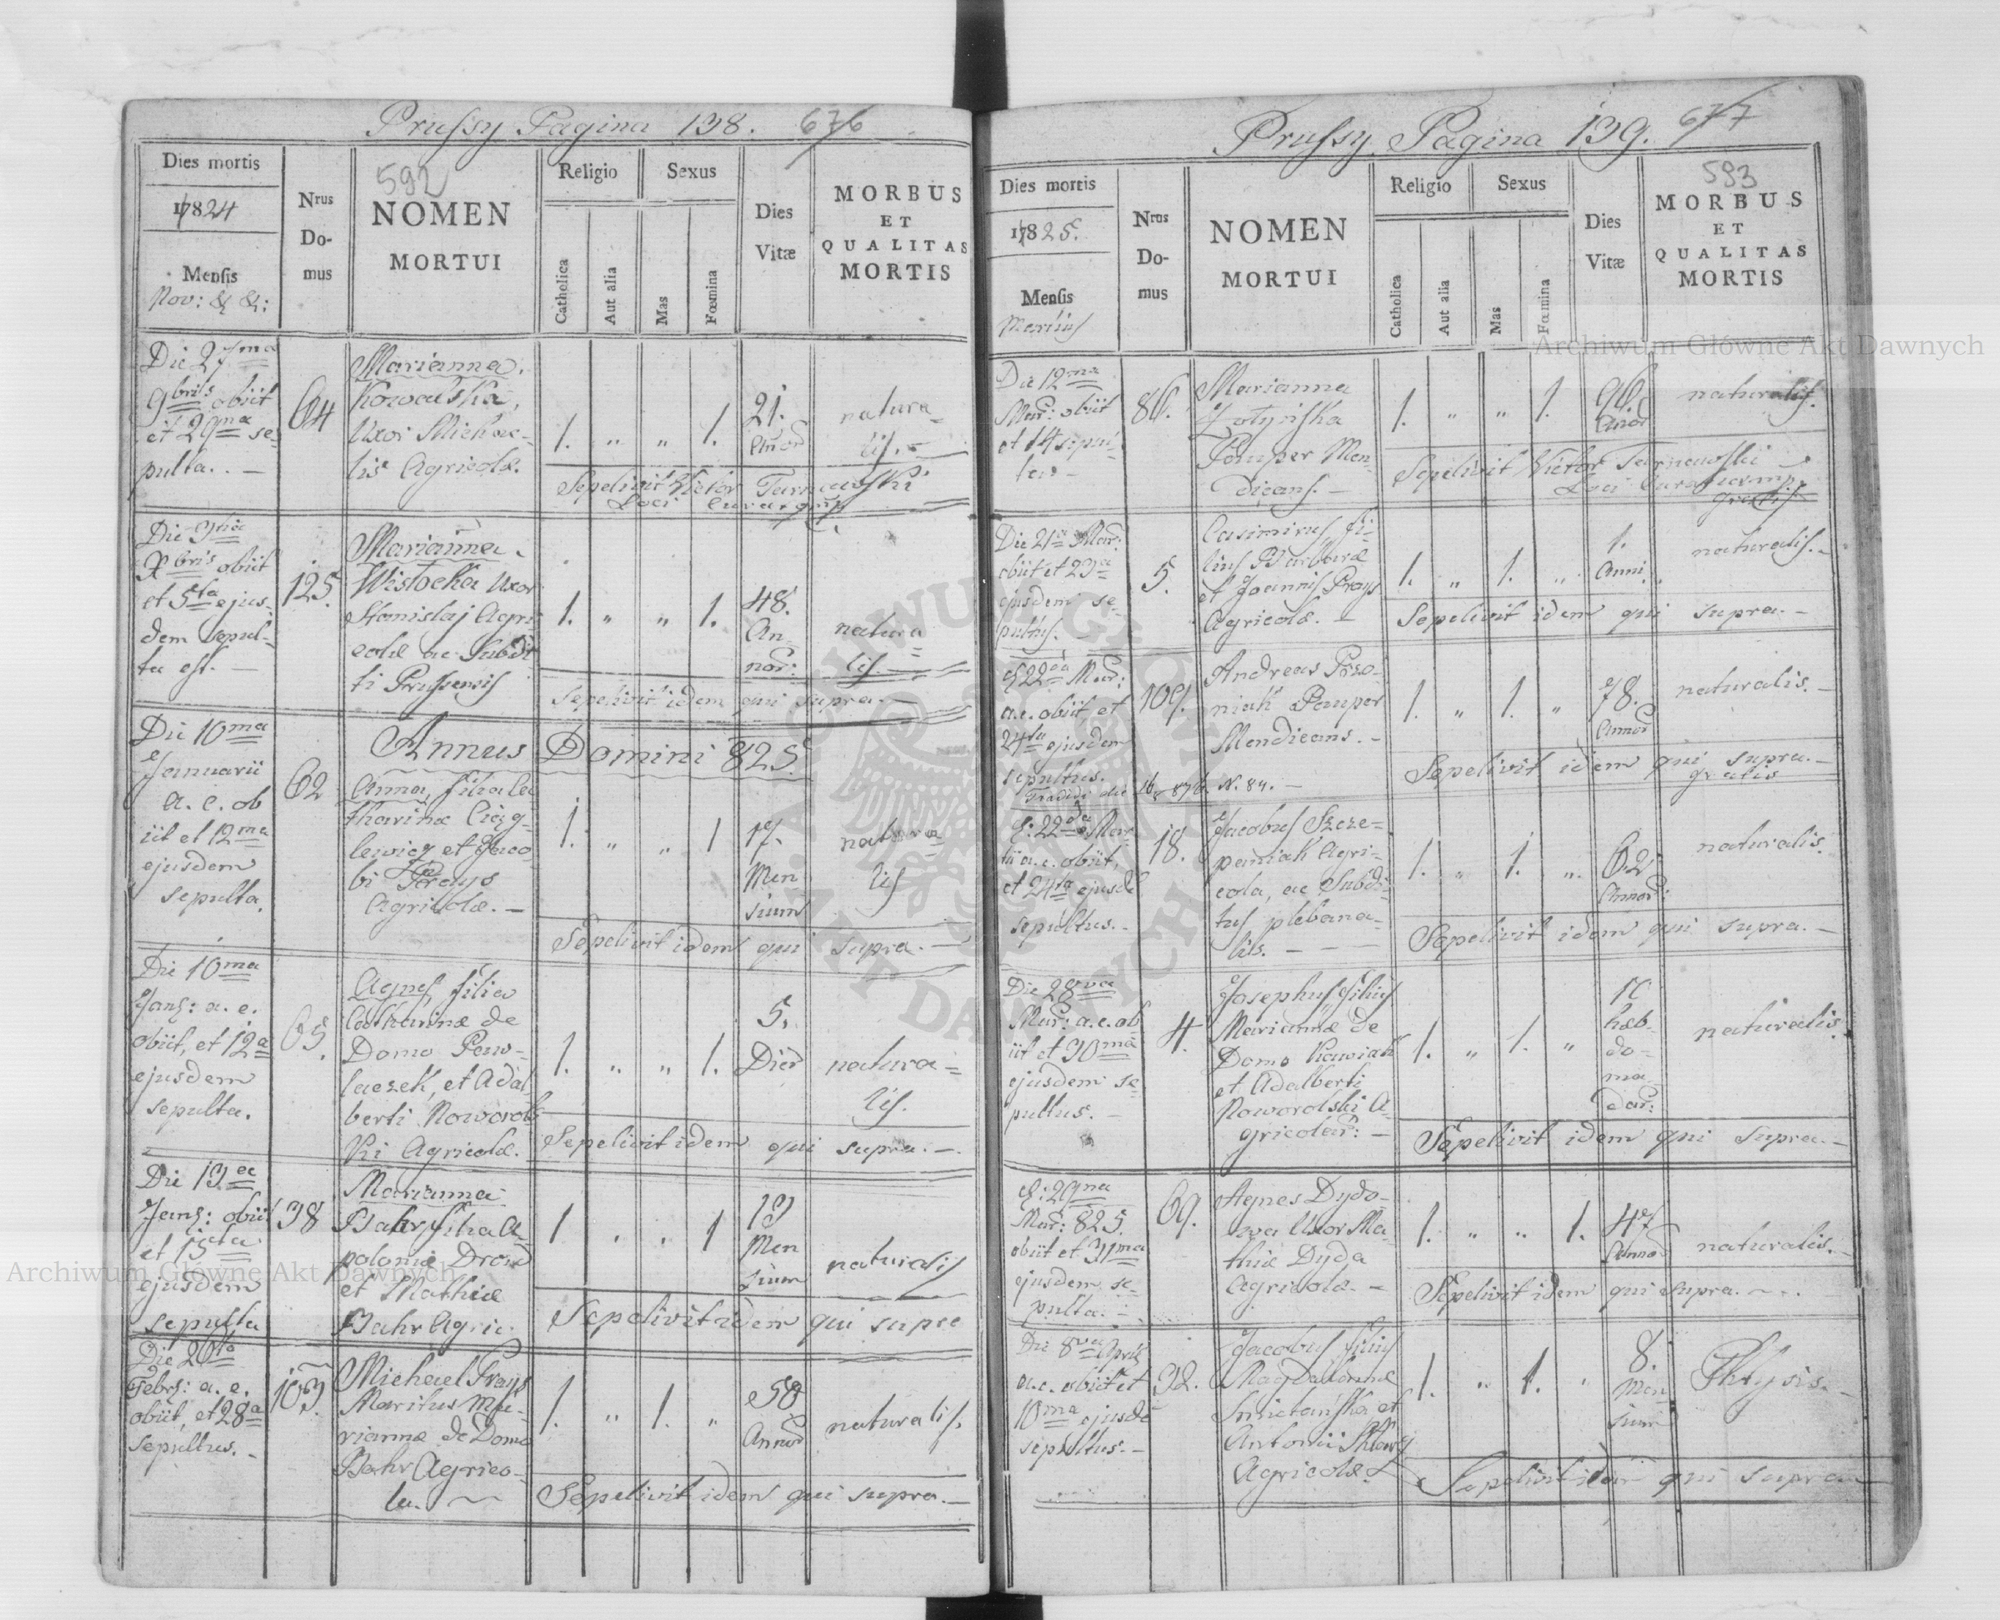 Prussy Pagina 138. 676
Dies mortis
1824
Mensis
Nov: & &:
Nrus
Do-
mus
592
NOMEN
MORTUI
Religio
Catholica
Aut alia
Sexus
Mas
Fœmina
Dies
Vitæ
MORBUS
ET
QUALITAS
MORTIS
Die 27ma
9bris obiit
et 29na se-
pulta. . —
64
Marianna
Uxor Michae-
lis Agricolæ.
1. „ „ 1.
21.
Annor
natura-
lis. —
Sepelivit Victor Tarnawski
Loci Curatus
Die 3tia
Xbris obiit
et 5ta ejus-
dem sepul-
ta est. —
125.
Marianna
Wistocka Uxor
Stanislai Agri
colæ ac Subdi
ti Prussensis
1. „ „ 1.
48.
An-
nor:
natura
lis. —
Sepelivit idem qui supra. —
Annus Domini 825.
Die 10ma
Januarii
a. c. ob
iit et 12ma
ejusdem
sepulta.
62
Anna, filia Ca
tharinæ
et Jaco-
bi
Agricolæ. —
1. „ „ 1
17.
Men
sium
natura
lis
Sepelivit idem qui supra. —
Die 10ma
Janr: a. c.
obiit, et 12a
ejusdem
sepulta.
65.
Agnes, filia
Catharinæ de
Domo Paw-
laczek, et Adal
berti Noworol-
ski Agricolæ.
1. „ „ 1.
5.
Dier
natura-
lis.
Sepelivit idem qui supra. —
Die 13ae
Janr: obiit
et 15ta
ejusdem
sepulta
38
Marianna
Bahr, filia A-
poloniæ
et Mathiæ
Bahr Agric.
1 „ „ 1
13
Men
sium
naturalis
Sepelivit idem qui supra
Die 26ta
Febr: a. c.
obiit, et 28a
sepultus. —
103.
Michael Prays
Maritus Ma-
riannæ de Domo
Bahr Agrico-
la. —
1. „ 1. „
58
Annor
naturalis.
Sepelivit idem qui supra. —
Prussy. Pagina 139. 677
Dies mortis
1825.
Mensis
Martius
Nrus
Do-
mus
NOMEN
MORTUI
Religio
Catholica
Aut alia
Sexus
Mas
Fœmina
Dies
Vitæ
593
MORBUS
ET
QUALITAS
MORTIS
Die 12ma
Mar: obiit
et 14 sepul-
ta —
86.
Marianna
Pauper Men-
dicans. —
1. „ „ 1.
96.
Annor
naturalis.
Sepelivit Victor Tarnawski
Loci Curatus
gratis
Die 21a Mar:
obiit et 23a
ejusdem se-
pultus. —
5.
Casimirus, fi-
lius Barbaræ
et Joannis Prays
Agricolæ. —
1. „ 1. „
1.
Anni.
naturalis. —
Sepelivit idem qui supra. —
22da Mar:
a. c. obiit, et
24ta ejusdem
sepultus.
109.
Andreas
Pauper
Mendicans. —
1. „ 1. „
78.
Annor
naturalis. —
Sepelivit idem qui supra. —
gratis
22da Mar
tii a. c. obiit,
et 24ta ejusd
sepultus. —
18.
Jacobus Szcze-
paniak Agri-
cola, ac Subdi-
tus plebana-
lis. —
1. „ 1. „
62
Annor:
naturalis.
Sepelivit idem qui supra. —
Die 28va
Mar: a. c. ob
iit et 30ma
ejusdem se-
pultus. —
4.
Josephus filius
Mariannæ de
Domo
et Adalberti
Noworolski A-
gricolar: —
1. „ 1. „
heb-
do-
ma
dar:
naturalis.
Sepelivit idem qui supra. —
29na
Mar: 825.
obiit et 31ma
ejusdem se-
pulta. —
69.
Agnes Dydo-
wa Uxor Ma-
thiæ Dyda
Agricolæ. —
1. „ „ 1.
47
Annor
naturalis. —
Sepelivit idem qui supra. —
Die 8va Apris
a. c. obiit et
10ma ejusde
sepultus. —
32.
Jacobus filius
Magdalennæ
et
Antonii
Agricolæ.
1. „ 1. „
8.
Men-
sium
Phtysis. —
Sepelivit idem qui supra —
Archiwum Główne Akt Dawnych
Archiwum Główne Akt Dawnych
ARCHIWUM GŁÓWNE
AKT DAWNYCH